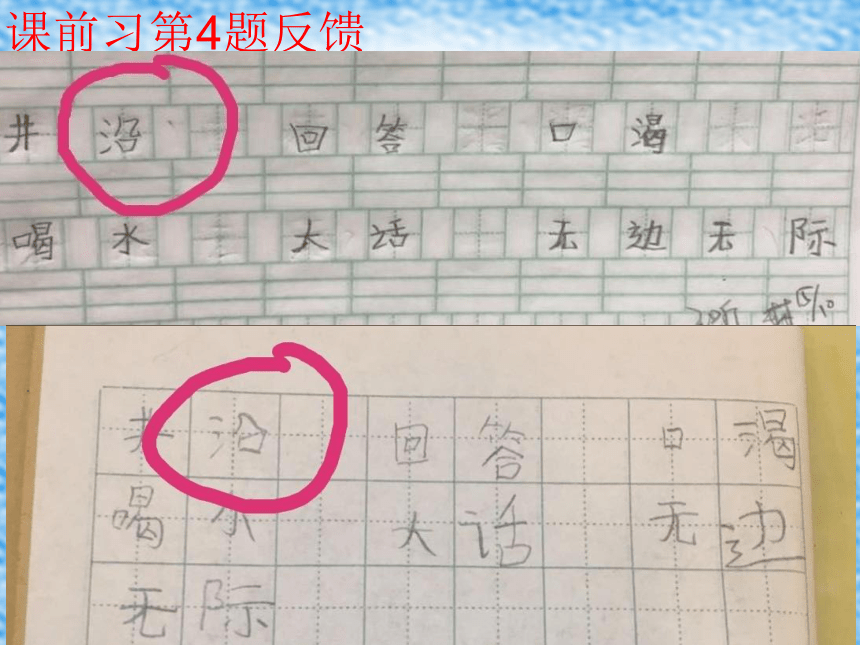 课前习第4题反馈
井沿 回答 口渴
喝水 大话 无边无际
15/10
井沿 回答 口渴
喝水 大话 无边
无际